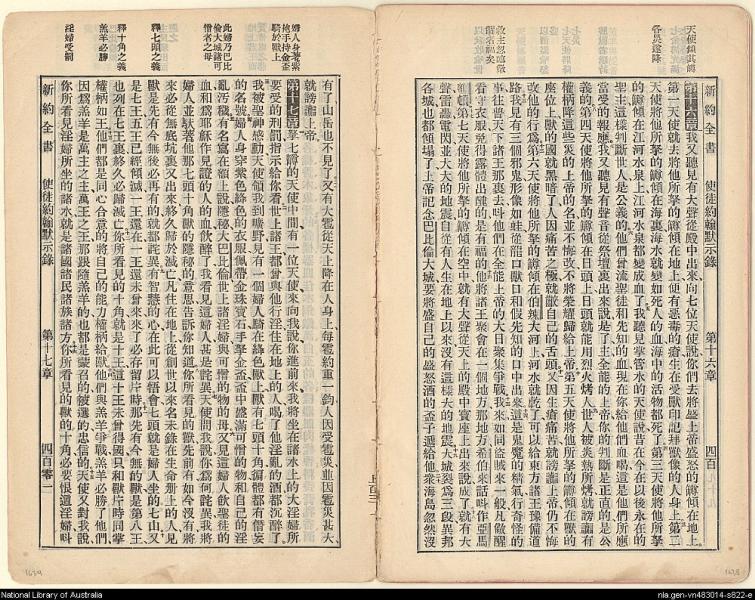 天使傾其罇
各異遂降
救主忽臨儆
醒者福矣
新約全書　使徒約翰默示錄　第十六章　四百
第十六章我又聽見有大聲從殿中出來向七位天使說你們去將盛上帝盛怒的罇傾在地上
第一天使就去將他所拏的罇傾在地上便有惡毒的瘡生在受獸印記拜獸像的人身上第二
天使將他所拏的罇傾在海裏海水就變如死人的血海中的活物都死了第三天使將他所拏
的罇傾在江河水泉上江河水泉都變成血了我聽見掌管水的天使說昔在今在以後永在的
聖主這樣判斷世人是公義的他們曾流聖徒和先知的血現在你給他們血喝這是他們所應
當受的報應我又聽見有聲音從祭壇裏出來說是了主全能的上帝你的判斷是正直的是公
義的第四天使將他所拏的罇傾在日頭上日頭就能用烈火烤人世人被炎熱所烤就謗讟有
權柄降這些災的上帝的名並不悔改不將榮耀歸給上帝第五天使將他所拏的罇傾在獸的
座位上獸的國就黑暗了人因痛苦之極就齩自己的舌頭又因生瘡痛苦就謗讟上帝仍不悔
改他的行爲第六天使將他所拏的罇傾在伯辣大河上河水就乾了可以給東方諸王豫備道
路我見有三個邪鬼形像如蛙從龍口獸口和假先知的口中出來這是鬼魔的精氣行奇怪的
事往普天下諸王那裏去叫他們在全能上帝的大日聚集爭戰我來如同盜賊來一般凡儆醒
看守衣服免得露體出醜的是有福的他將諸王聚會在一個地方那地方希伯來話叫作亞馬
頓第七天使將他所拏的罇傾在空中就有大聲從天上的殿中寶座上出來說成了就有
聲雷轟電閃並大大的地震自從有人生在地上以來沒有這樣大的地震大城裂爲三段異邦
各城也都傾塌了上帝記念巴比倫大城要將盛自己的盛怒酒的盃子遞給他衆海島忽然沒
婦人身著紫
袍手持金盃
騎於獸上
此婦乃巴比
倫大城諸可
憎者之母
釋七頭之義
釋十角之義
羔羊必勝
淫婦受罰
有了山岳也不見了又有大雹從天上降在人身上每雹約重一鈞人因受雹災並因雹災甚大
就謗讟上帝
第十七章拏七罇的天使中間有一位天使來向我說你進前來我將坐在諸水上的大淫婦所
要受的刑罰指示給你看世上諸王都曾與他行淫住在地上的人喝了他淫亂的酒都沉醉了
我被聖神感動天使領我到曠野見有一個婦人騎在絳色獸上獸有七頭十角徧體都有僭妄
的名號婦人身穿紫色絳色的衣服佩帶金珠寶石手拏金盃盃中盛滿可憎的物和自己的淫
亂污穢有名寫在額上說隱祕大巴比倫世上諸淫婦與可憎的物的母又見這婦人飲聖徒的
血和爲耶穌作見證的人的血飲醉了我看見這婦人甚是詫異天使問我說你爲何詫異我將
婦人並馱著他那七頭十角獸的隱秘的意思告訴你知道你所看見的獸先前有如今沒有將
來必從無底坑裏又出來終久歸於滅亡凡住在地上從創世以來名未錄在生命册上的人見
獸是先有今無後必再有的就都詫異有智慧的心在此可以悟會七頭就是婦人坐的七山又
是七王五王已經傾滅一王還在一王還未曾來來了必存留片時那先有今無的獸是第八王
也列在七王裏終久必歸滅亡你所看見的十角就是十王這十王未曾得國只和獸片時同掌
權柄如王他們都是同心合意的將自己的能力權柄給獸他們與羔羊爭戰羔羊必勝了他們
因爲羔羊是萬主之主萬王之王那跟隨羔羊的也都是蒙召的被選的忠信的天使又對我說
你所看見淫婦所坐的諸水就是諸國諸民諸族諸方你所看見的獸的十角必要恨這淫婦叫
新約全書　使徒約翰默示錄　第十七章　四百零一
National Library of Australia
nla.gen-vn483014-s822-e